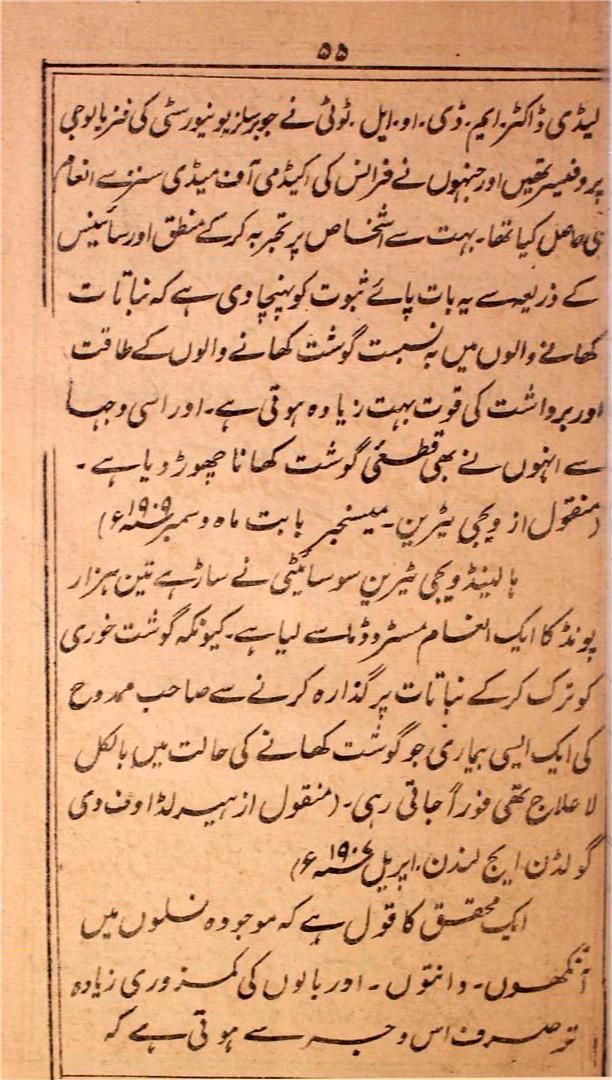 ۵۵
لیڈی ڈاکٹر ایم. ڈی. او. ایل. ٹوٹی نے جو برسلز یونیورسٹی کی فزیالوجی
پروفیسر تھیں اور جنہوں نے فرانس کی اکیڈمی آف میڈی سنز سے انعام
بھی حاصل کیا تھا۔ بہت سے اشخاص پر تجربہ کر کے منطق اور سائینس
کے ذریعہ سے یہ بات پائے ثبوت کو پہنچا دی ہے کہ نباتات
کھانے والوں میں بہ نسبت گوشت کھانے والوں کے طاقت
اور برداشت کی قوت بہت زیادہ ہوتی ہے۔ اور اسی وجہا
سے انہوں نے بھی قطعئی گوشت کھانا چھوڑ دیا ہے۔
(منقول از ویجی ٹیرین۔ میسنجر بابت ماہ دسمبر ۱۹۰۹ء)
ہالینڈ ویجی ٹیرین سوسائیٹی نے ساڑہے تین ہزار
پونڈ کا ایک انعام مسٹر وڈما سے لیا ہے۔ کیونکہ گوشت خوری
کو ترک کر کے نباتات پر گذارہ کرنے سے صاحب ممدوح
کی ایک ایسی بیماری جو گوشت کھانے کی حالت میں بالکل
لا علاج تھی فوراً جاتی رہی۔ (منقول از ہیرلڈ اوف دی
گولڈن ایج لندن. اپریل ۱۹۰۷ء)
ایک محقق کا قول ہے کہ موجودہ نسلوں میں
آنکھوں۔ دانتوں۔ اور بالوں کی کمزوری زیادہ
تو صرف اس وجہ سے ہوتی ہے کہ